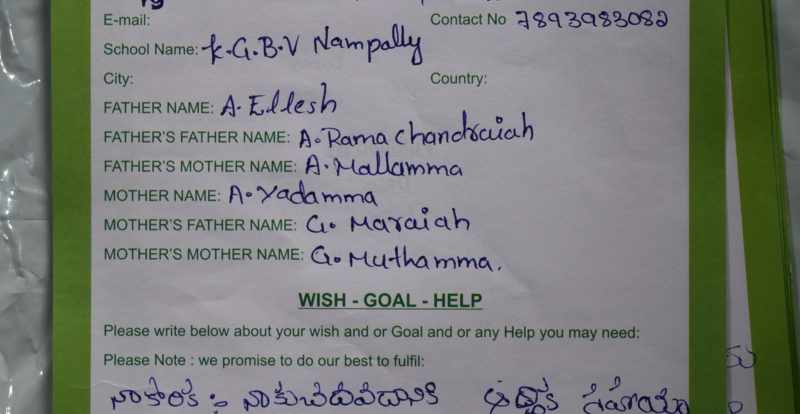 E-mail: Contact No 7893983082
School Name: K.G.B.V Nampally
City: Country:
FATHER NAME: A. Ellesh
FATHER'S FATHER NAME: A. Rama chandraiah
FATHER'S MOTHER NAME: A. Mallamma
MOTHER NAME: A. Yadamma
MOTHER'S FATHER NAME: G. Maraiah
MOTHER'S MOTHER NAME: G. Muthamma.
WISH - GOAL - HELP
Please write below about your wish and or Goal and or any Help you may need:
Please Note : we promise to do our best to fulfil:
నా కోరిక : నాకు చదువడానికి ఆర్థిక సహాయం